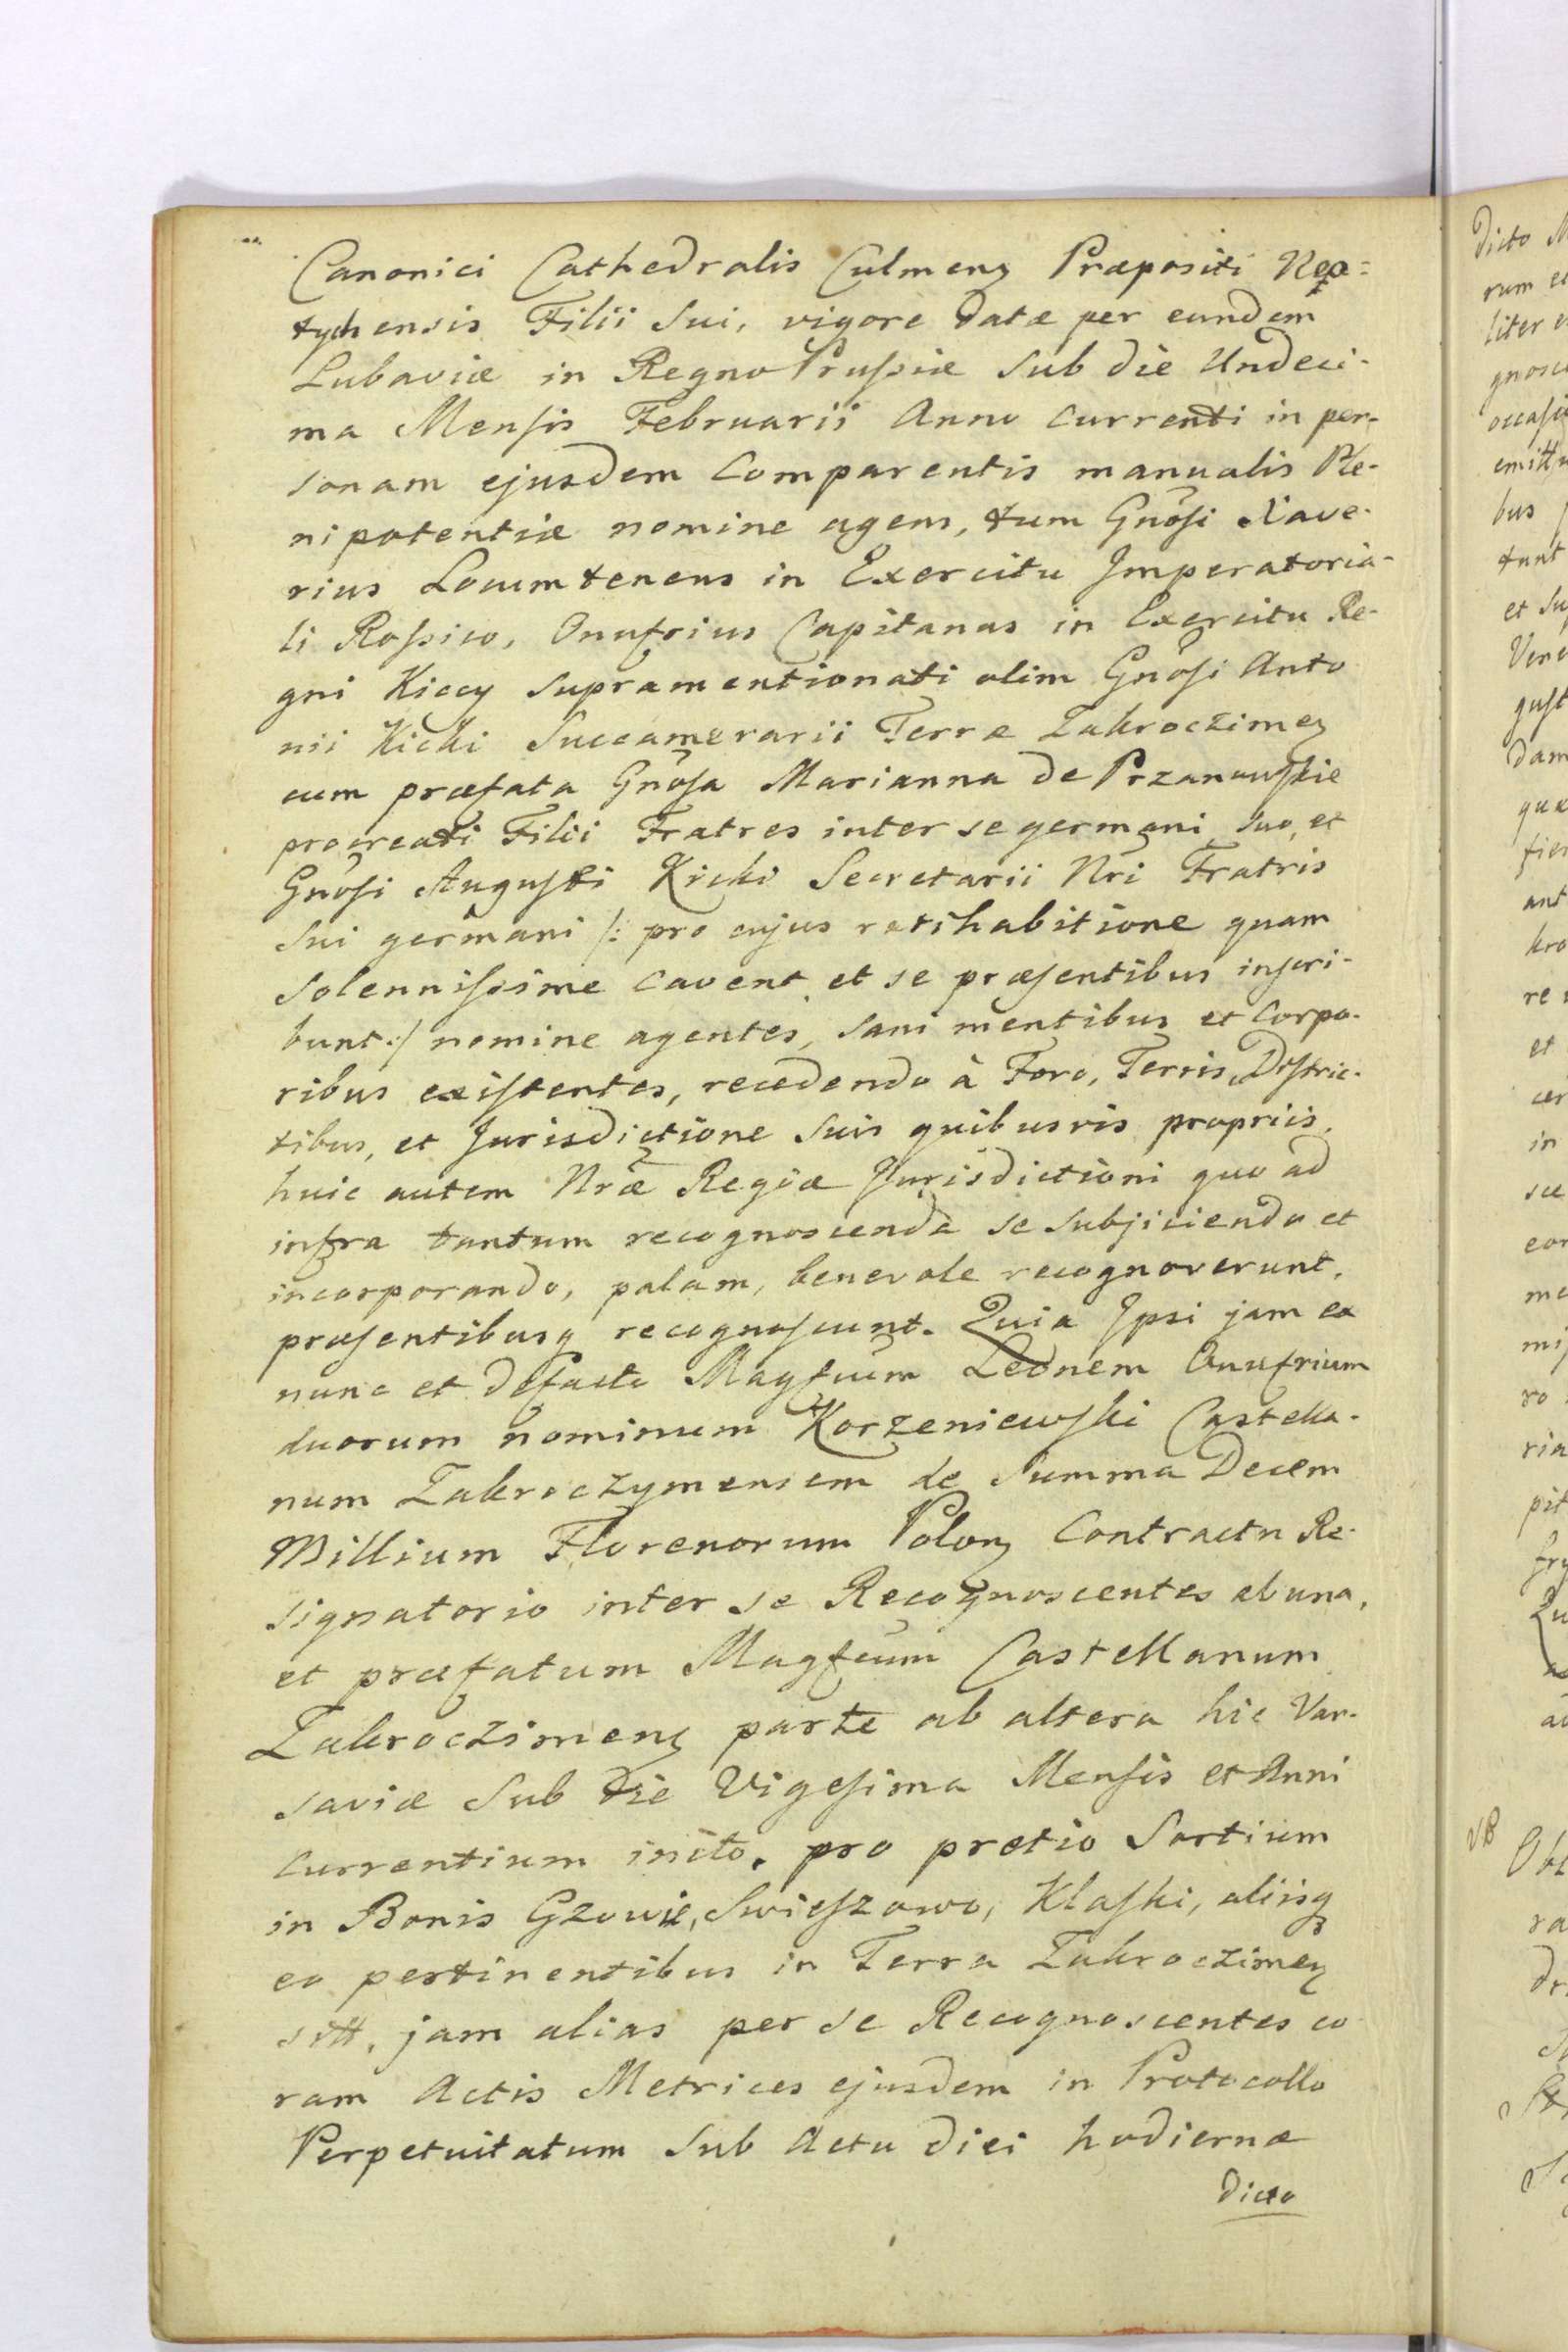 Canonici Cathedralis Culmens Præpositi Rep=
tychensis Filii Sui, vigore datæ per eundem
Lubaviæ in Regno Prussiæ Sub die Undeci-
ma Mensis Februarii Anno Currenti in per-
sonam ejusdem Comparentis manualis Ple-
nipotentiæ nomine agens, tum Gnosi Xave-
rius Locumtenens in Exercitu Imperatoria-
li Rossico, Onufrius Capitanas in Exercitu Re-
gni Kiccy supramentionati olim Gnosi Anto
nii Kicki Succamerarii Terræ Zakroczimen
cum præfata Gnosa Marianna de Przanowskie
procreati Filii Fratres inter se germani suo, et
Gnosi Augusti Kicki Secretarii Nri Fratris
Sui germani /: pro cujus ratihabitione quam
Solennissime cavent et se præsentibus inscri-
bunt :/ nomine agentes, sani mentibus et Corpo-
ribus existentes, recedendo à Foro, Terris, Distric-
tibus, et Jurisdictione suis quibusvis propriis,
huic autem Nræ Regiæ Jurisdictioni quo ad
infra tantum recognoscenda se subjiciendo et
incorporando, palam, benevole recognoverunt,
præsentibusq recognoscunt. Quia Ipsi jam ex
nunc et defacto Magfcum Leonem Onufrium
duorum nominum Korzeniewski Castella-
num Zakroczymensem de Summa Decem
Millium Florenorum Polon Contractu Re-
signatorio inter se Recognoscentes ab una,
et præfatum Magfcum Castellanum
Zakroczimens parte ab altera hic Var-
saviæ Sub die Vigesima Mensis et Anni
currentium inito, pro pretio Sortium
in Bonis Gzowie, Swieszowo, Klaski, aliisq
eo pertinentibus in Terra Zakroczimen
sitt, jam alias per se Recognoscentes co
ram Actis Metrices ejusdem in Protocollo
Perpetuitatum Sub Actu diei hodiernæ
Dicto